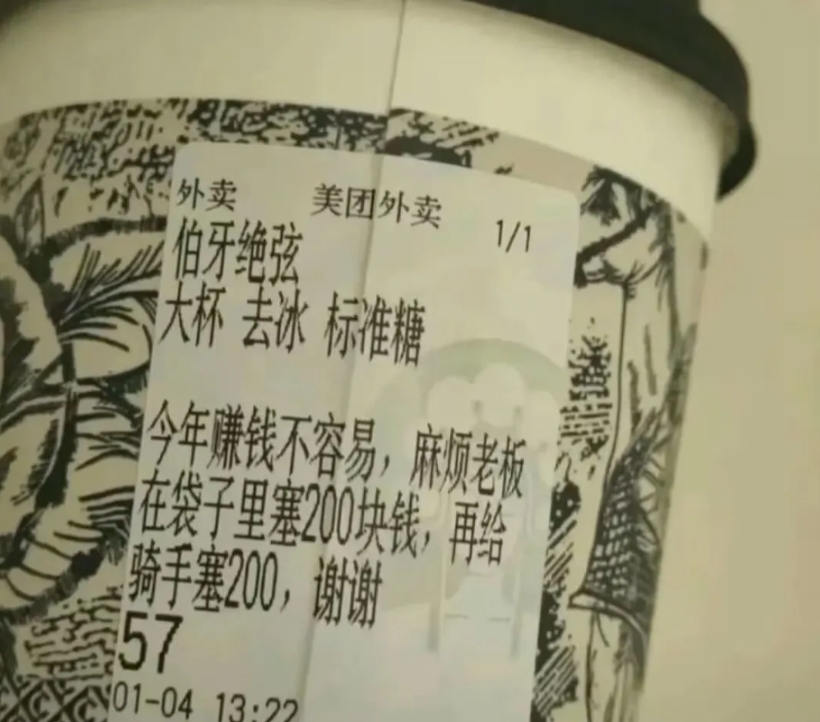 外卖 美团外卖 1/1
伯牙绝弦
大杯 去冰 标准糖
今年赚钱不容易，麻烦老板
在袋子里塞200块钱，再给
骑手塞200，谢谢
57
01-04 13:22